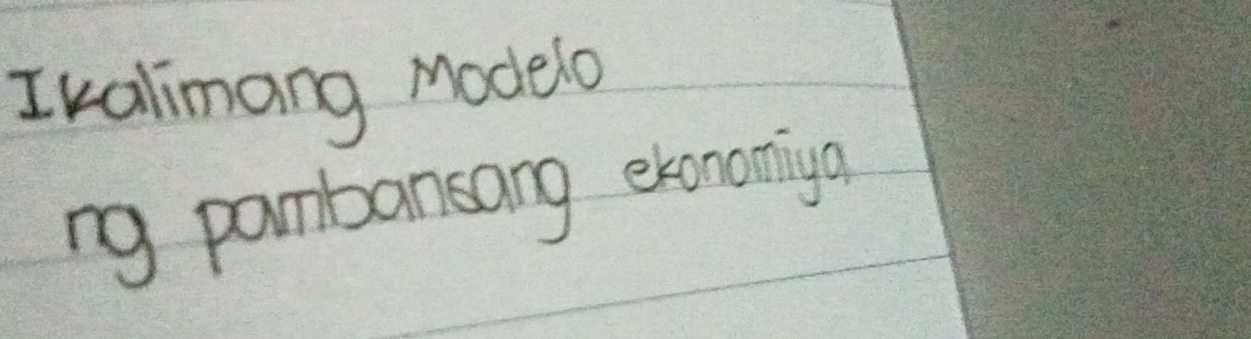 Ikalimang Modelo
ng pambansang ekonomiya